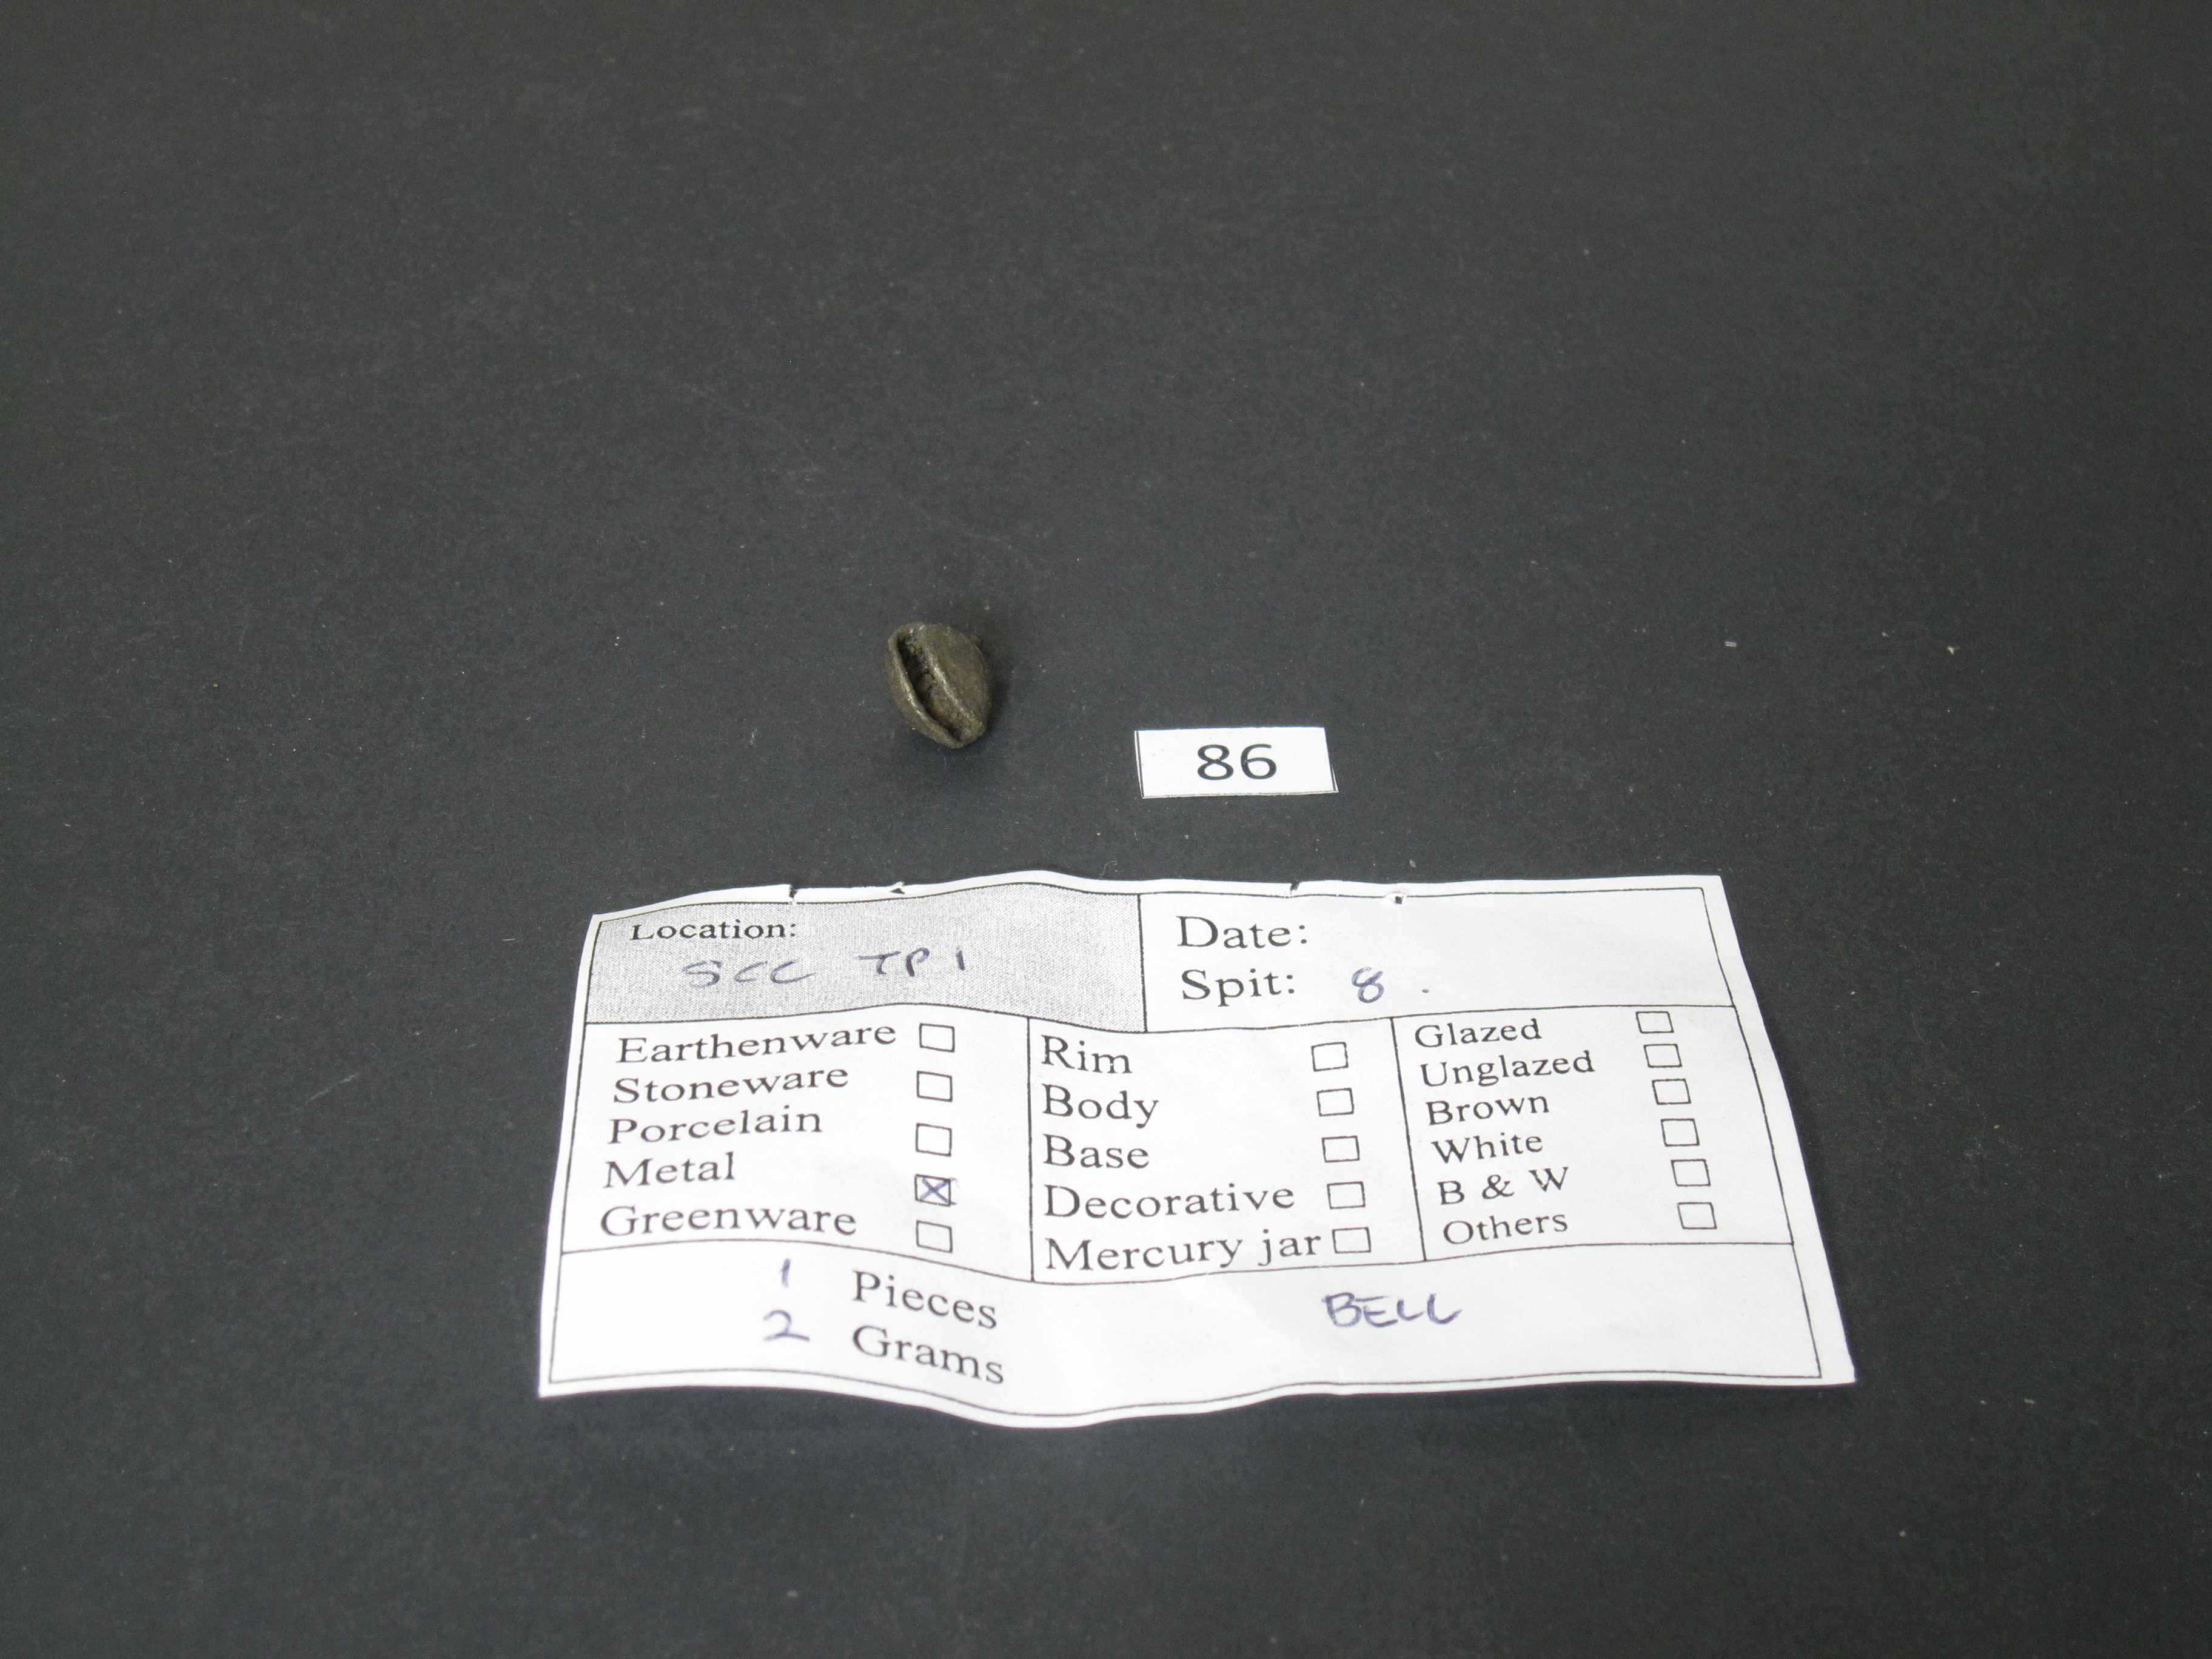 86
Location:
SCC TP 1
Date:
Spit: 8 .
Earthenware
Stoneware
Porcelain
Metal
Greenware
Rim
Body
Base
Decorative
Mercury jar
Glazed
Unglazed
Brown
White
B & W
Others
1 Pieces
2 Grams
BELL